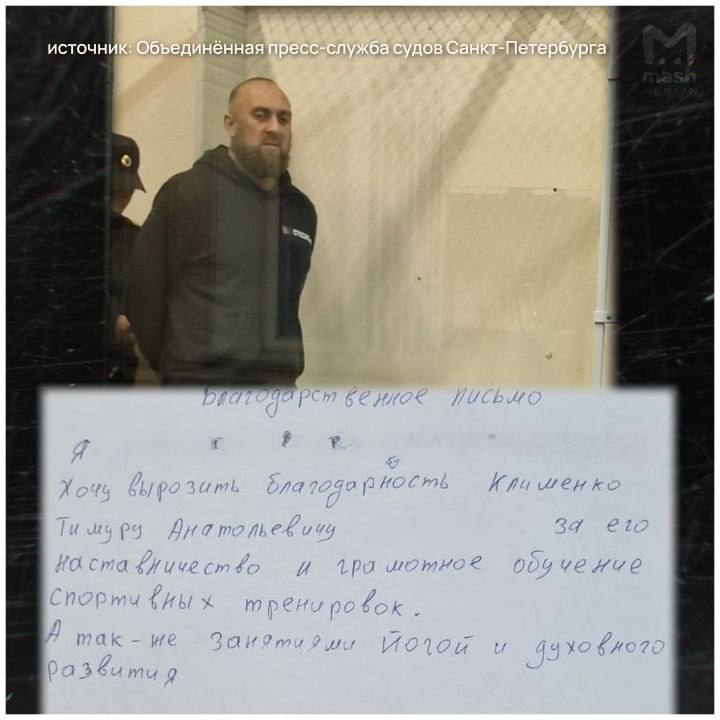 источник: Объединённая пресс-служба судов Санкт-Петербурга
mash
Благодарственное письмо
Я
Хочу вырозить благодарность Клименко
Тимуру Анатольевичу за его
наставничество и грамотное обучение
спортивных тренировок.
А так-же занятиями йогой и духовного
развития